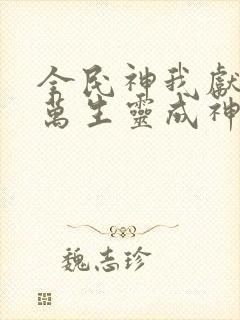 全民神我獻
萬生靈成神
魏志珍